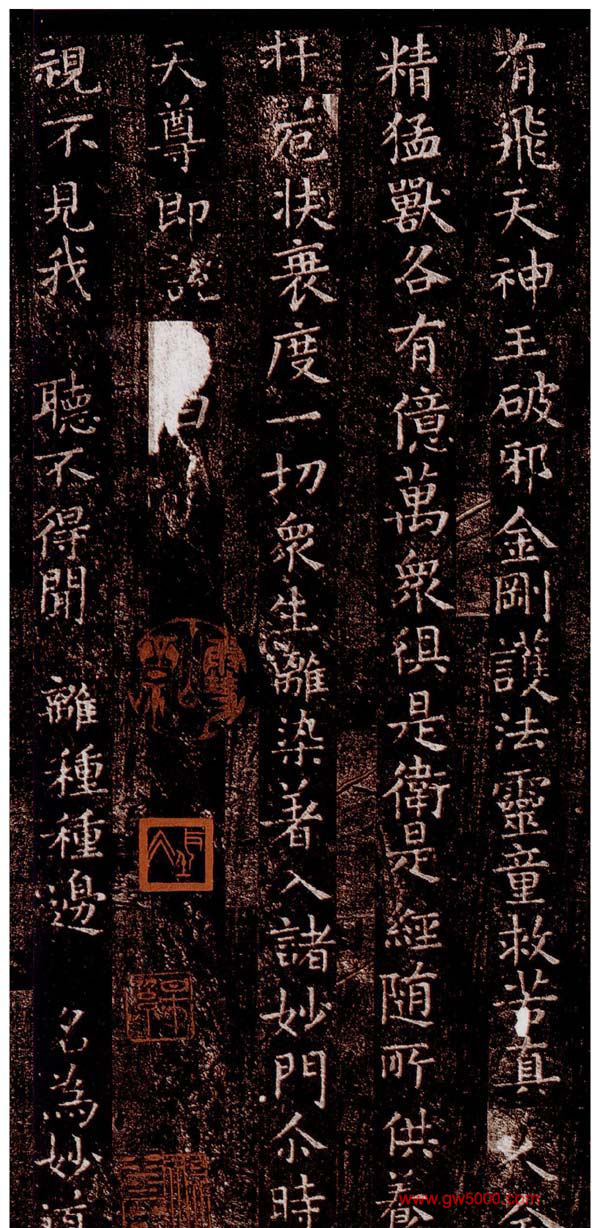 有飛天神王破邪金剛護法靈童救苦真人
精猛獸各有億萬衆俱是衛是經随所供養
扞厄扶衰度一切衆生離染著入諸妙門尒時
天尊即說 曰
視不見我 聽不得聞 離種種邊 名為妙道
www.gw5000.com